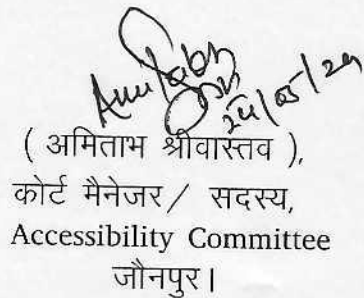 Amitabh
24/05/24
( अमिताभ श्रीवास्तव ),
कोर्ट मैनेजर / सदस्य,
Accessibility Committee
जौनपुर।